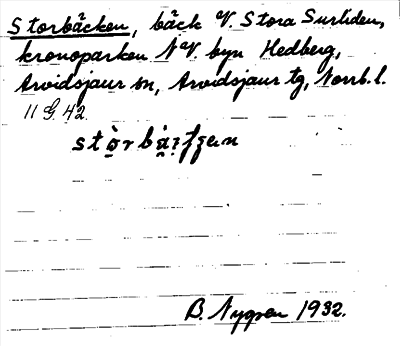 Storbäcken, bäck V. Stora Surliden,
kronoparken NV. byn Hedberg,
Arvidsjaur sn, Arvidsjaur tg, Norrb. l.
11 G. 42.
B. Nygren 1932.